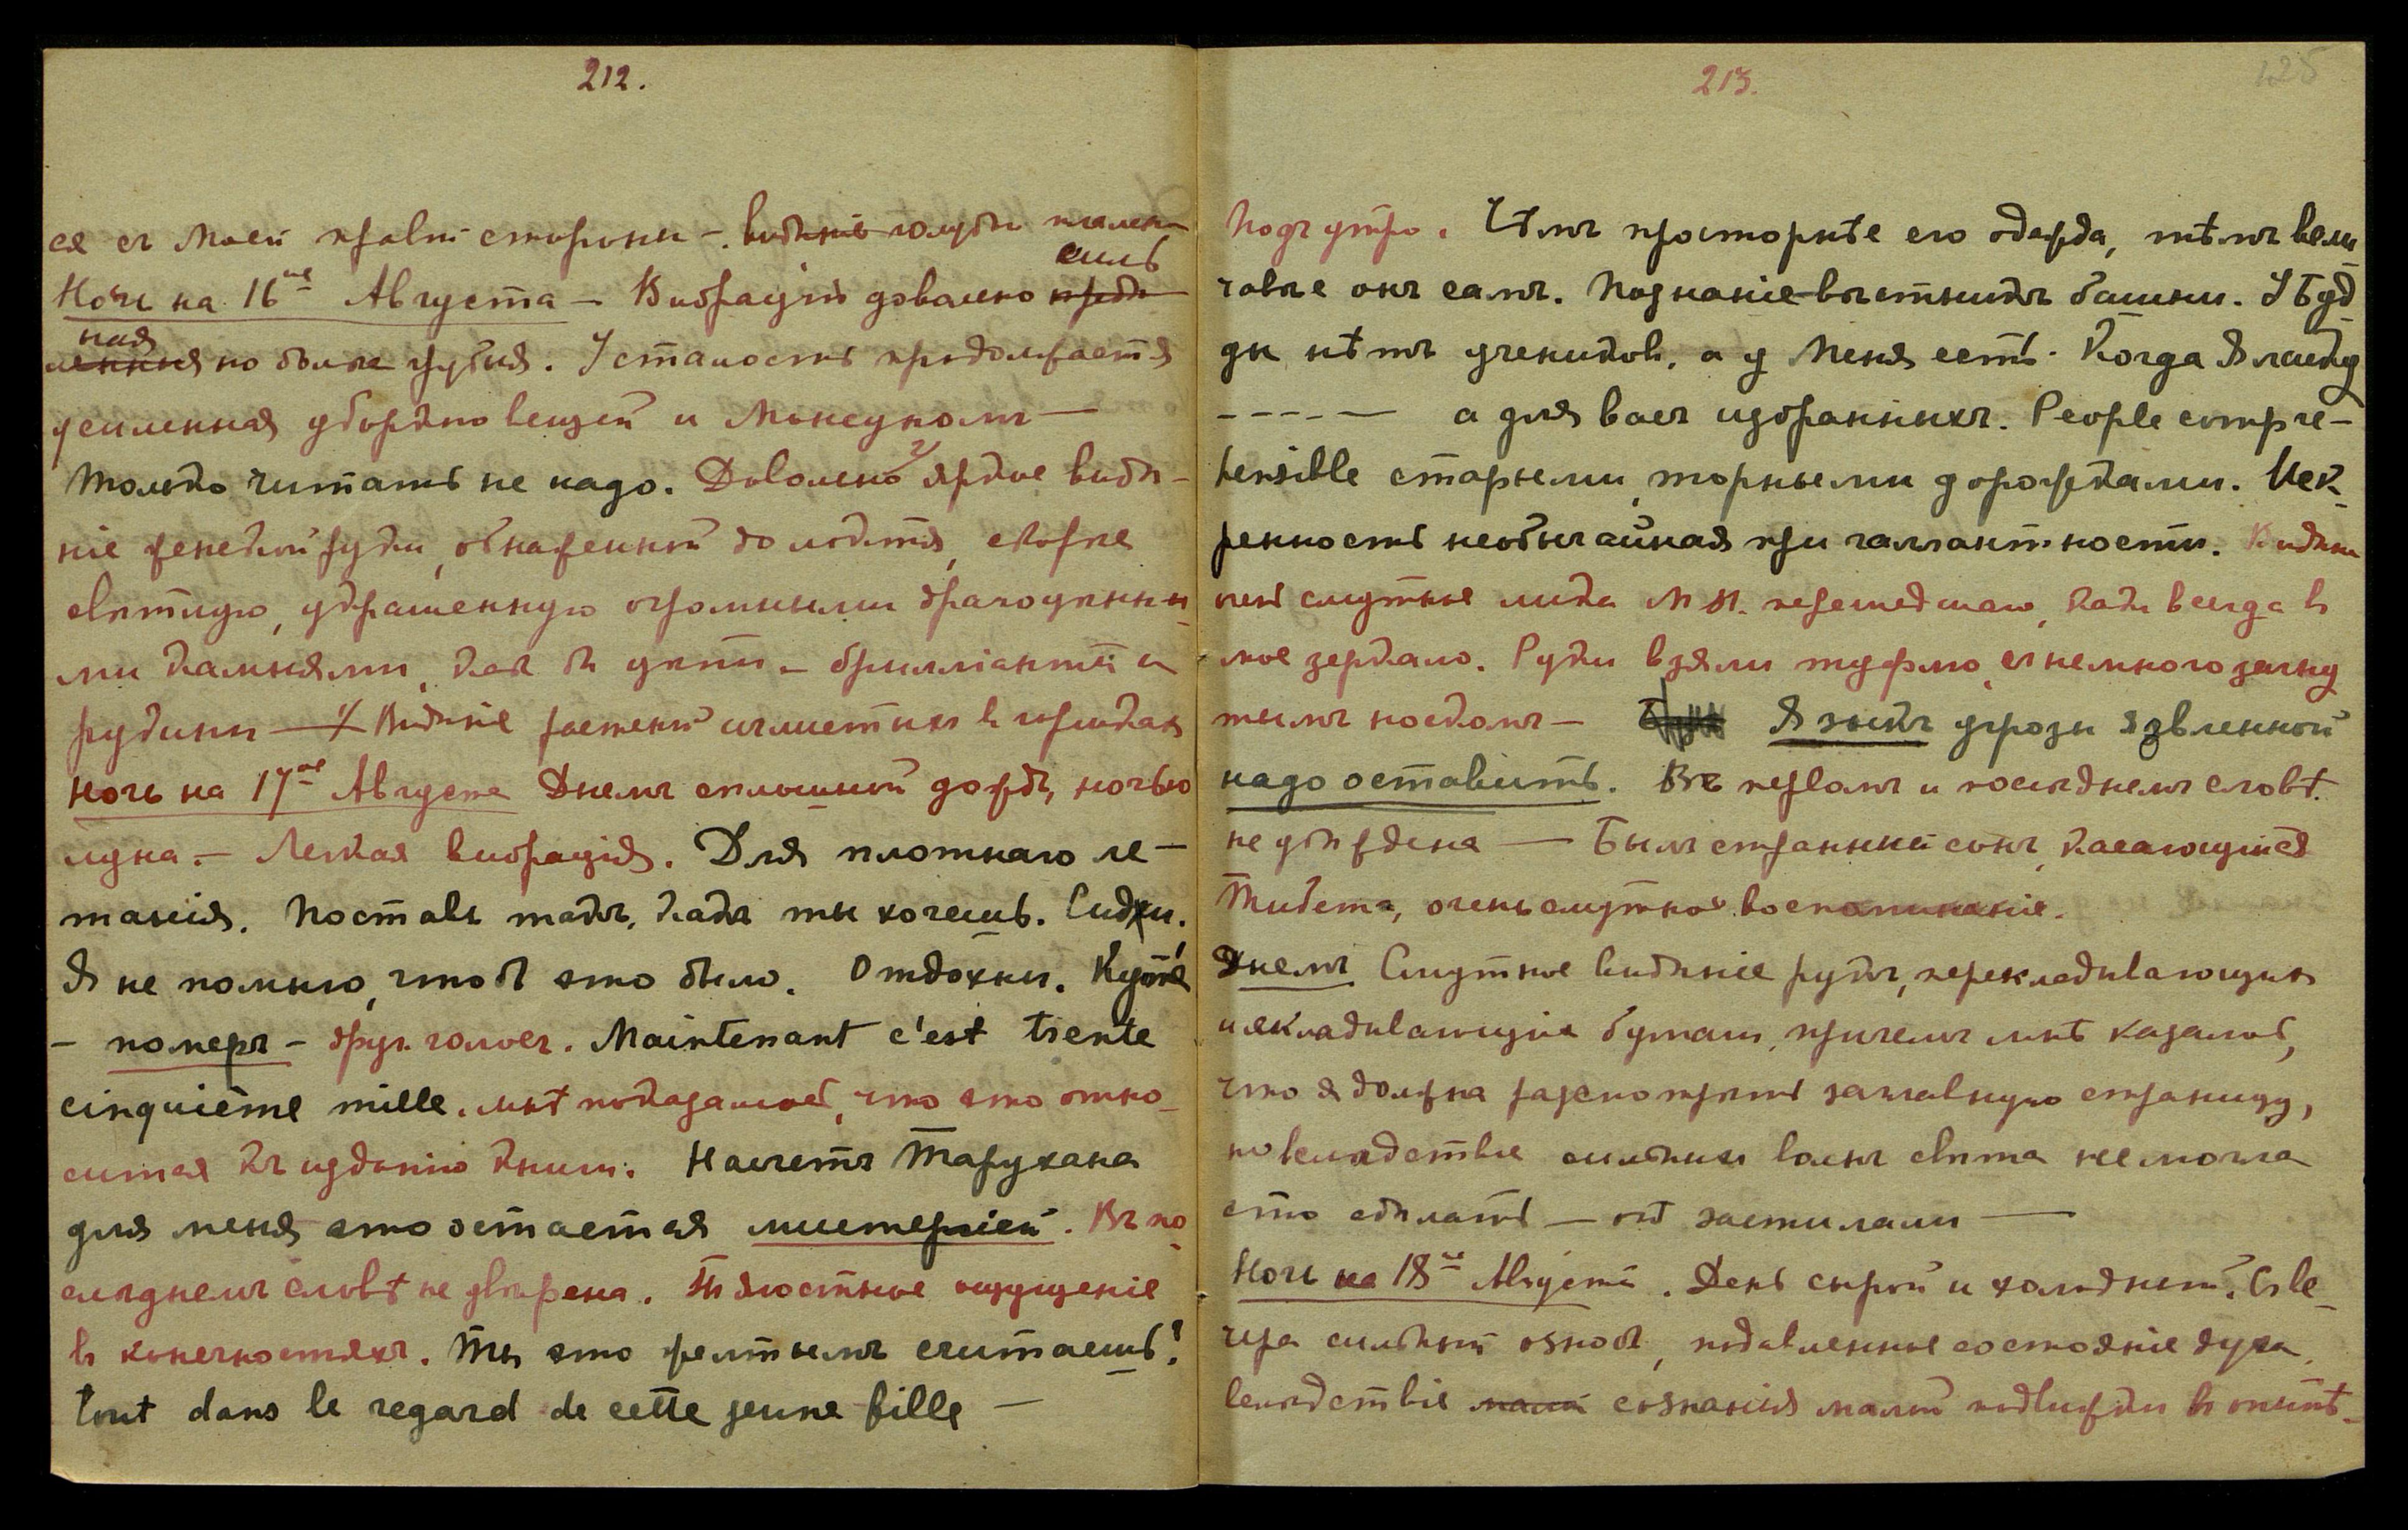 212.
ся съ моей правой стороны –. видѣніе голубы пламен
силь
Ночь на 16ое Августа – Вибраціи довольно
ная
но болѣе грубыя. Усталость продолжается
усиленная уборкою вещей и Монсуномъ —
Только читать не надо. Довольно 2/ яркое видѣ-
ніе женской руки, обнаженной до локтя, скорѣе
свѣтлую, украшенную огромными драгоцѣнны-
ми камнями, как бы цвѣты – брилліанты и
рубины — 1/ Видѣніе растеній
Ночь на 17ое Августа Днемъ сплошной дождь, ночью
луна. – Легкая вибрація. Для плотнаго ле-
танія. Поставь такъ, какъ ты хочешь. Сиди.
Я не помню, чтоб это было. Отдохни. Кутѐ
– померъ – друг. голосъ. Maintenant c'est trente
cinquième mille. мнѣ показалось, что это отно-
сится къ изданію книги. Насчетъ Тарухана
для меня это остается мистеріей. Въ по-
слѣднемъ словѣ не увѣрена. Тягостное ощущеніе
въ конечностяхъ. Ты это желтымъ считаешь?
tout dans le regard de cette jeune fille —
213.
125
Подъ утро. Чѣмъ просторнѣе его одежда, тѣмъ вели-
чавѣе онъ самъ. Познаніе вѣстникъ башни. У Буд-
ды нѣтъ учениковъ, а у Меня есть. Когда Я гляжу
----- а для васъ избранныхъ. People compre-
hensible старыми, торными дорожками. Иск-
ренность необычайная при галлантности. Видѣн
очень смутное лика М. М. перешедшаго, какъ всегда в
мое зеркало. Руки взяли туфлю, съ немного загну
тымъ носкомъ – Языкъ угрозы явленной
надо оставить. Въ первомъ и послѣднемъ словѣ
не убѣждена — Былъ странный сонъ, касающійся
Тибета, очень смутное воспоминаніе.
Днемъ Смутное видѣніе рукъ, перекладывающихъ
и складывающихъ бумаги, причемъ мнѣ казалось,
что я должна разсмотрѣть заглавную страницу,
но вслѣдствіе сильныхъ волнъ свѣта не могла
это сдѣлать — онѣ застилали —
Ночь на 18ое Августа. День сырой и холодный. Съ ве-
чера сильный ознобъ, подавленное состояніе духа,
вслѣдствіе сознанія малой подвижки въ опытѣ-